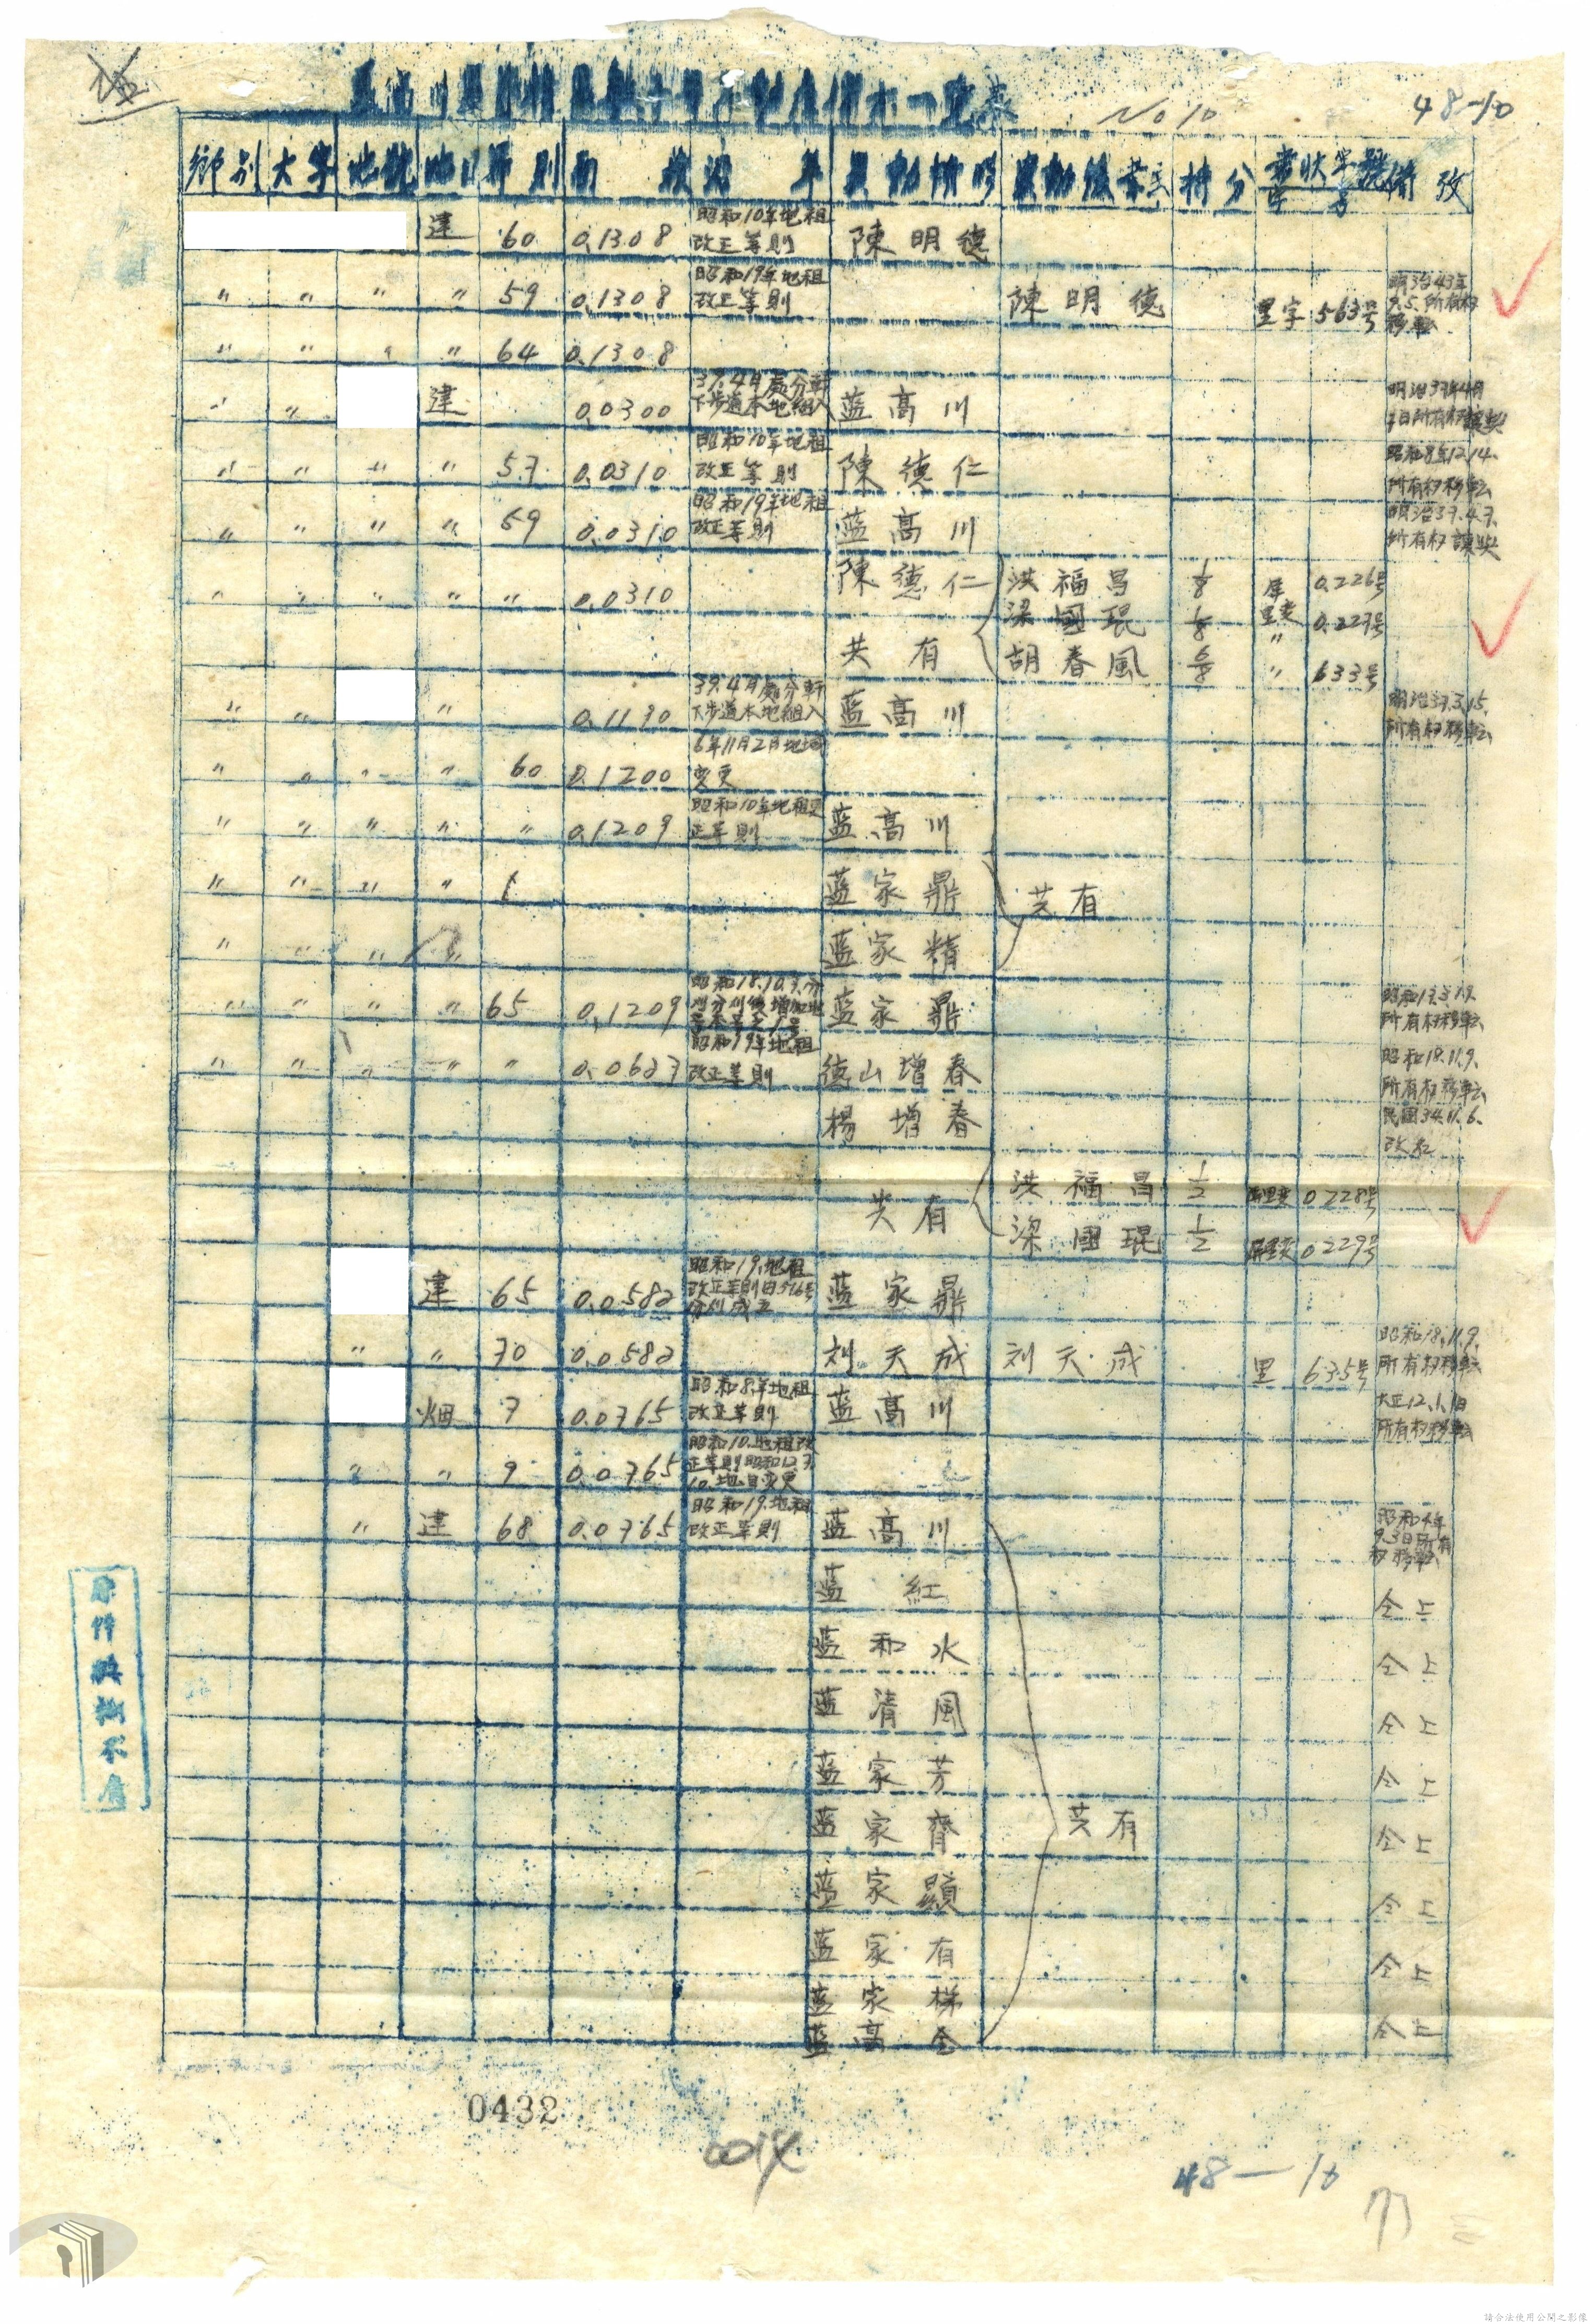 No 10
48-10
鄉別 大字 地號 地目 等則 面積 沿革 異動 異動後業主 持分 書狀字號 備攷
建 60 0.1308 昭和10年地租改正等則 陳明德
〃 〃 〃 〃 59 0.1308 昭和19年地租改正等則 陳明德 里字 563号 明治43年9.5.所有权移転
〃 〃 〃 〃 64 0.1308
〃 〃 建 0.0300 37.4月處分軒下步道本地組入 蓝高川
〃 〃 〃 〃 57 0.0310 昭和10年地租改正等則 陳德仁 昭和8年12.14.所有权移転
〃 〃 〃 〃 59 0.0310 昭和19年地租改正等則 蓝高川 明治37.4.7.所有权
〃 〃 〃 〃 0.0310 陳德仁 洪福昌 1/8 0.226号
梁國琨 1/8 〃 0.227号
共有 胡春風 6/8 〃 633号
〃 〃 〃 0.1190 39.4月處分軒下步道本地組入 蓝高川 明治37.3.15.所有权移転
〃 〃 〃 〃 60 0.1200 6年11月2日地目変更
〃 〃 〃 〃 〃 0.1209 昭和10年地租更正等則 蓝高川
〃 〃 〃 〃 蓝家鼎 共有
〃 〃 〃 〃 蓝家精
〃 〃 〃 〃 65 0.1209 昭和18.10.9.分 蓝家鼎 所有权移転
〃 〃 〃 〃 〃 0.0627 昭和19年地租改正等則 德山增春 昭和18.11.9.所有权移転
楊增春 民國34.11.6.改姓
共有 洪福昌 1/2 0228号
梁國琨 1/2 0229号
建 65 0.0582 昭和19.地租改正等則由576号分割成立 蓝家鼎
〃 〃 70 0.0582 刘天成 刘天成 里 635号 昭和18.11.9.所有权移転
畑 7 0.0765 昭和8.年地租改正等則 蓝高川 大正12.1.1日所有权移転
〃 〃 9 0.0765 昭和10.地租改正等則昭和12.7.10.地目変更
〃 建 68 0.0765 昭和19.地租改正等則 蓝高川 昭和4年9.3日所有权移転
蓝紅 仝上
蓝和水 仝上
蓝清風 仝上
蓝家芳 仝上
蓝家齊 共有 仝上
蓝家顯 仝上
蓝家有 仝上
蓝家梯 仝上
蓝高全 仝上
原件模糊不清
0432
48-10
請合法使用公開之影像